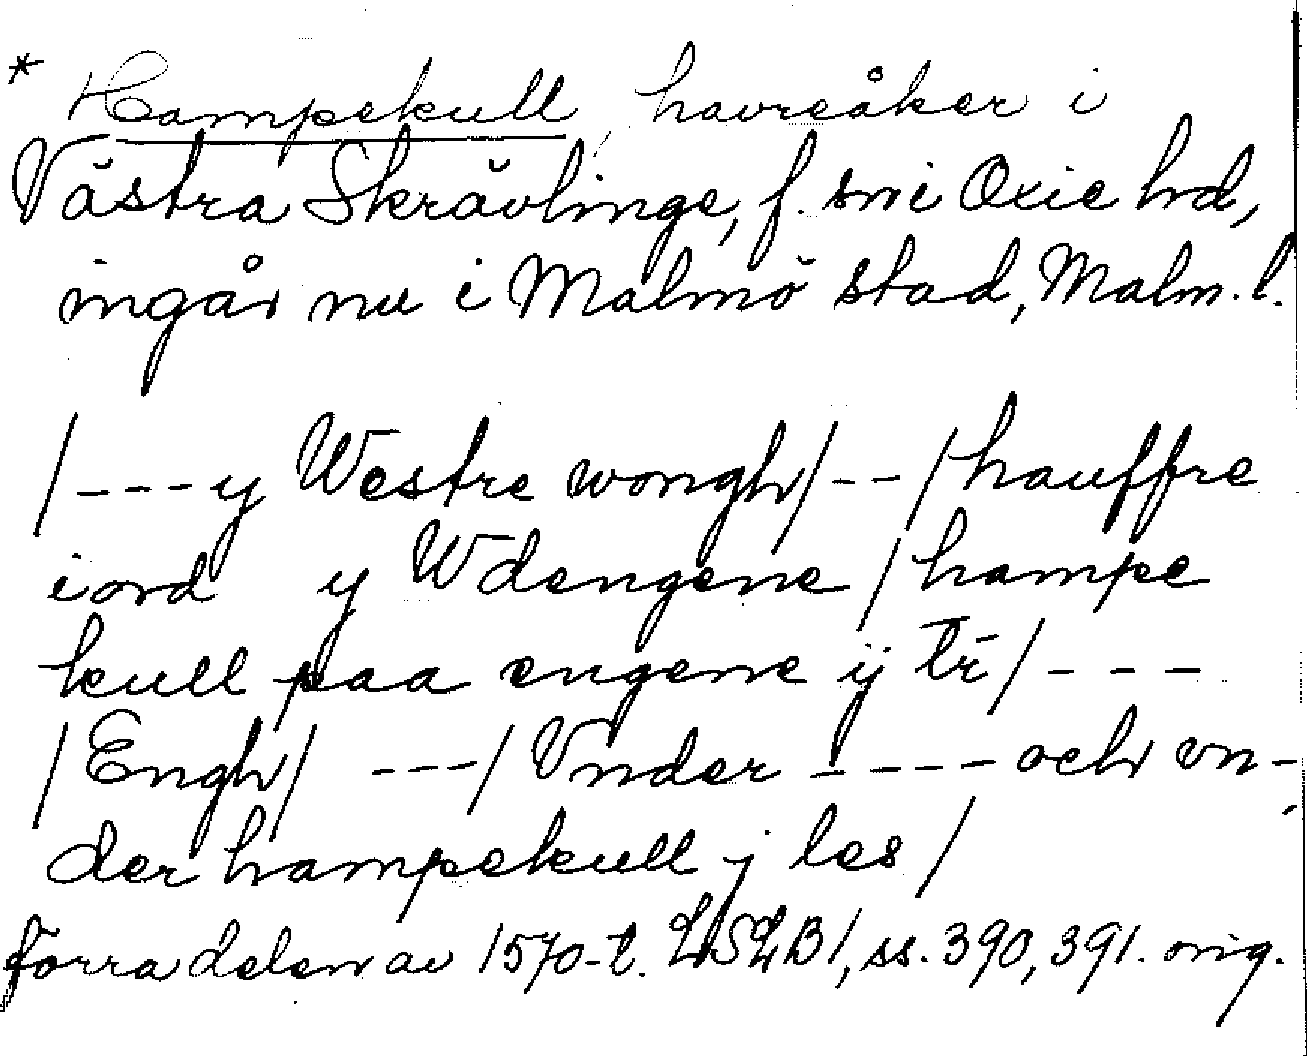 * Hampekull, havreåker i
Västra Skrävlinge, f. sn i Oxie hd,
ingår nu i Malmö stad, Malm. l.
/---y Westre wongh/--/hauffre
iord y Wdengene/hampe
kull paa engene ij tr̄/---
/Engh/ ---/Vnder ---- och vn-
der hampekull j les/
förra delen av 1570-t. LSLB1, ss. 390, 391. orig.